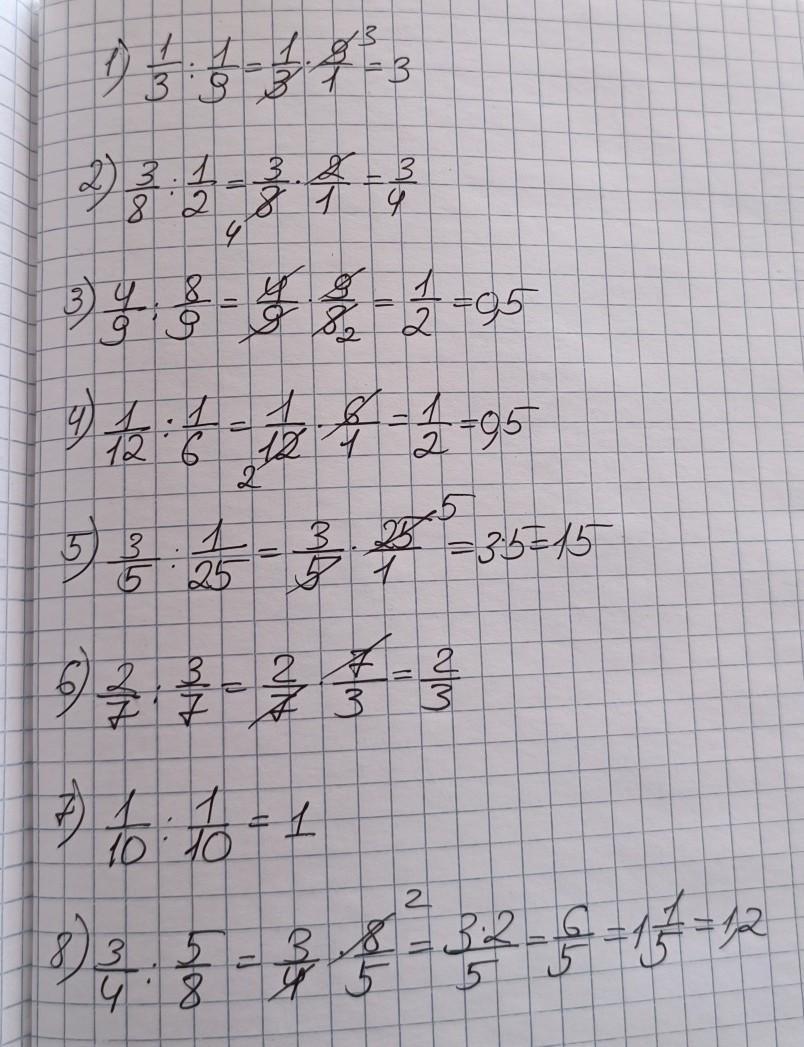 1) 1/3 : 1/9 = 1/3 · 9/1 ³ = 3
2) 3/8 : 1/2 = 3/8 ₄ · 2/1 = 3/4
3) 4/9 : 8/9 = 4/9 · 9/8 ₂ = 1/2 = 0,5
4) 1/12 : 1/6 = 1/12 ₂ · 6/1 = 1/2 = 0,5
5) 3/5 : 1/25 = 3/5 · 25/1 ⁵ = 3·5 = 15
6) 2/7 : 3/7 = 2/7 · 7/3 = 2/3
7) 1/10 : 1/10 = 1
8) 3/4 : 5/8 = 3/4 · 8/5 ² = 3·2/5 = 6/5 = 1 1/5 = 1,2